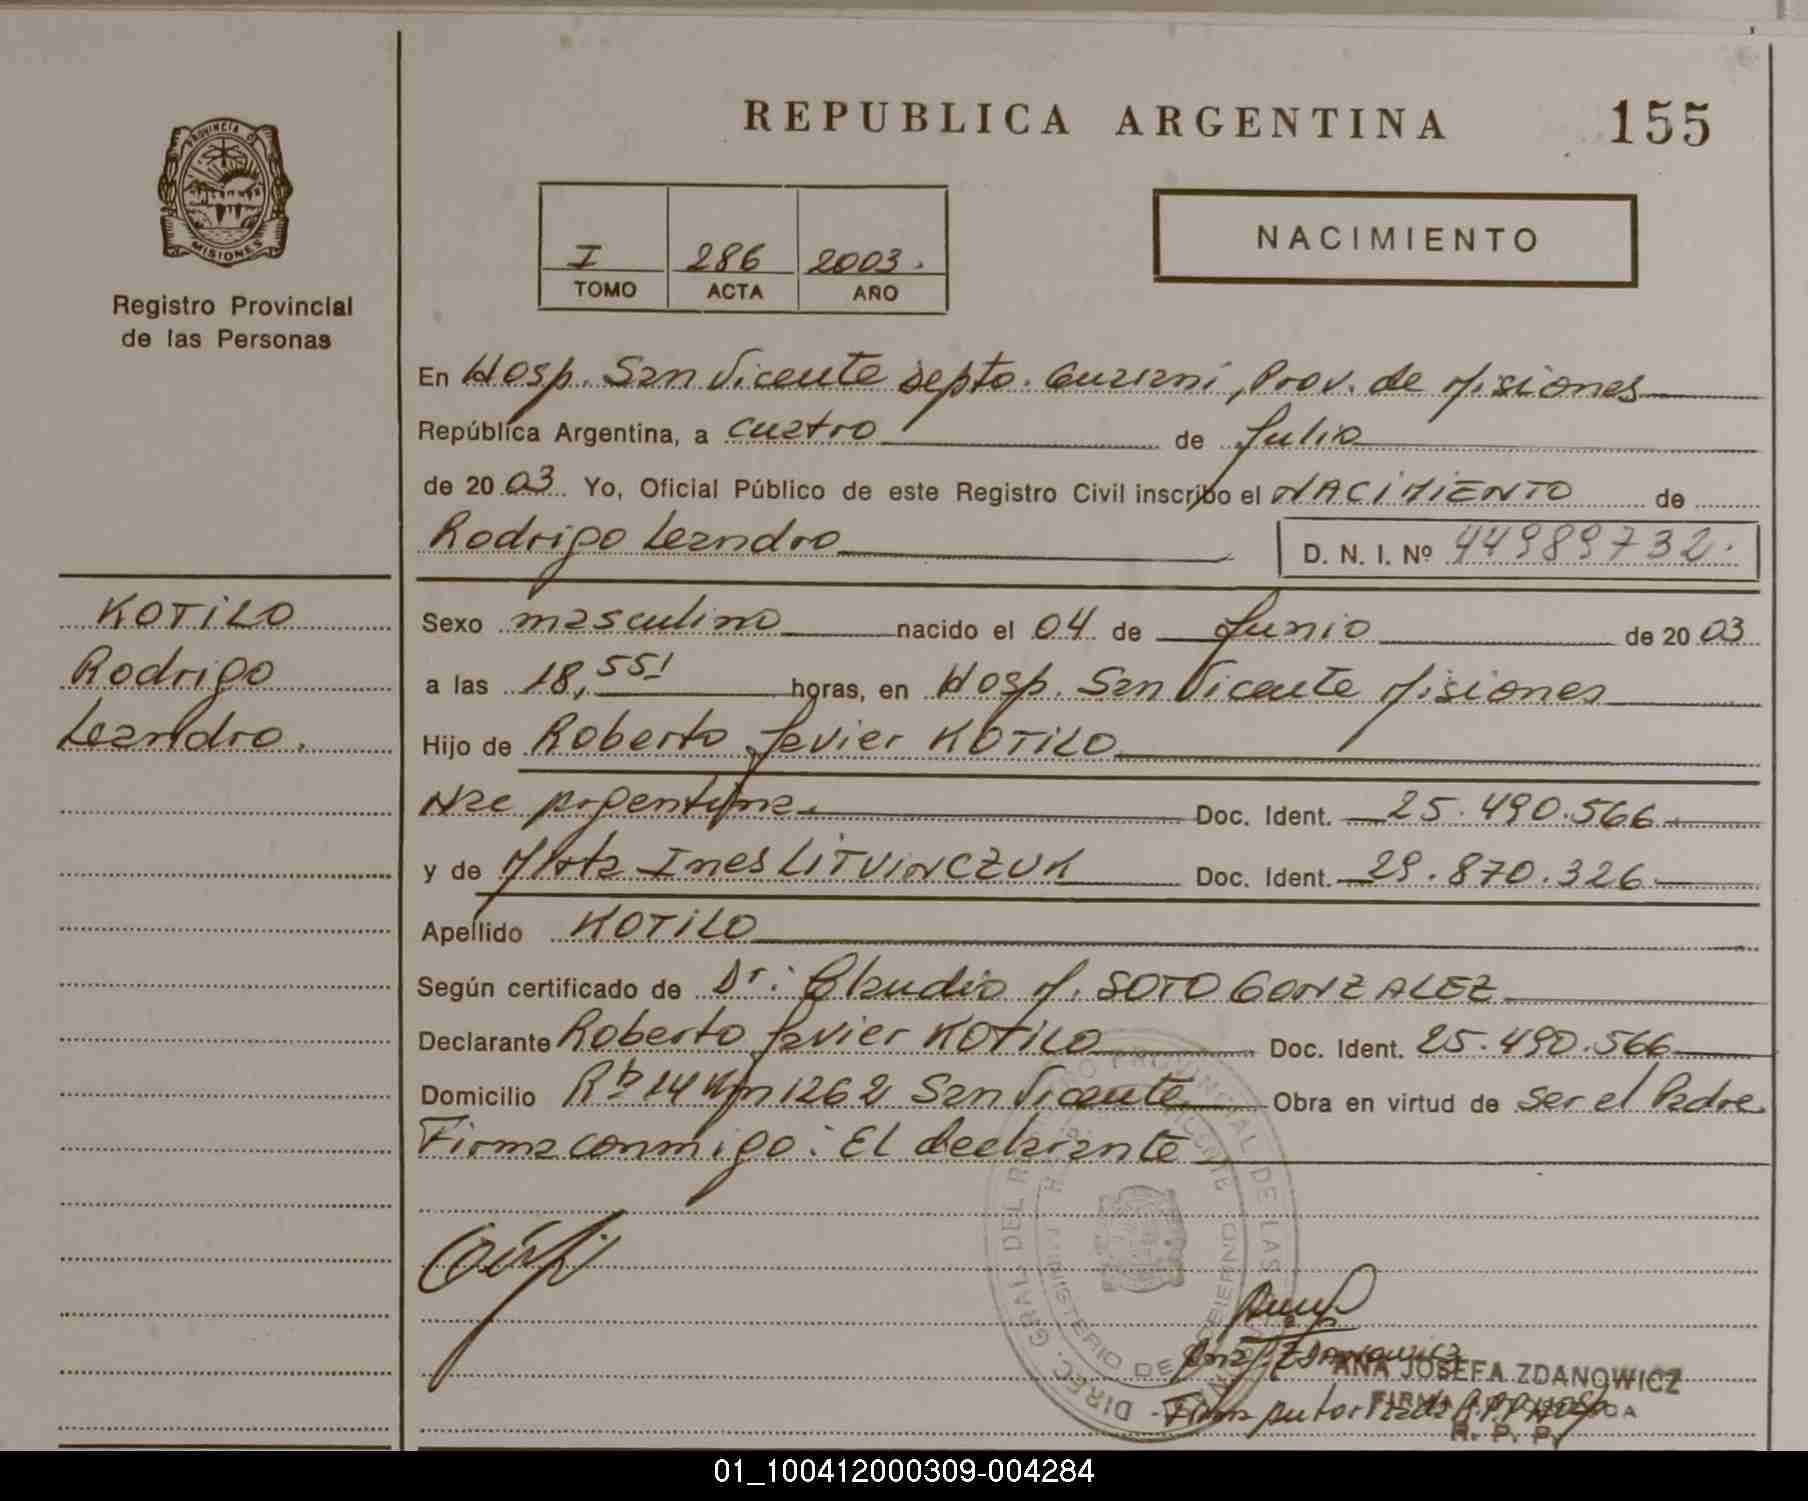 REPUBLICA ARGENTINA 155
PROVINCIA DE
MISIONES
Registro Provincial
de las Personas
I 286 2003.
TOMO ACTA AÑO
NACIMIENTO
En Hosp. San Vicente Depto. Guaraní, Prov. de Misiones
República Argentina, a cuatro de Julio
de 2003 Yo, Oficial Público de este Registro Civil inscribo el NACIMIENTO de
Rodrigo Leandro D. N. I. Nº 44989732.
KOTILO
Rodrigo
Leandro.
Sexo masculino nacido el 04 de Junio de 2003
a las 18,55' horas, en Hosp. San Vicente Misiones
Hijo de Roberto Javier KOTILO
Nac Argentina. Doc. Ident. 25.490.566
y de Mirta Ines LITVINCZUK Doc. Ident. 29.870.326
Apellido KOTILO
Según certificado de Dr: Claudio M. SOTO GONZALEZ
Declarante Roberto Javier KOTILO Doc. Ident. 25.490.566
Domicilio Rta 14 Km 1262 San Vicente Obra en virtud de ser el Padre
Firma conmigo: El declarante
DIREC. GRAL. DEL PROVINCIAL DE LAS
MINISTERIO DE GOBIERNO
Ana J. Zdanowicz
ANA JOSEFA ZDANOWICZ
Firma autorizada
R. P. P.
01_100412000309-004284